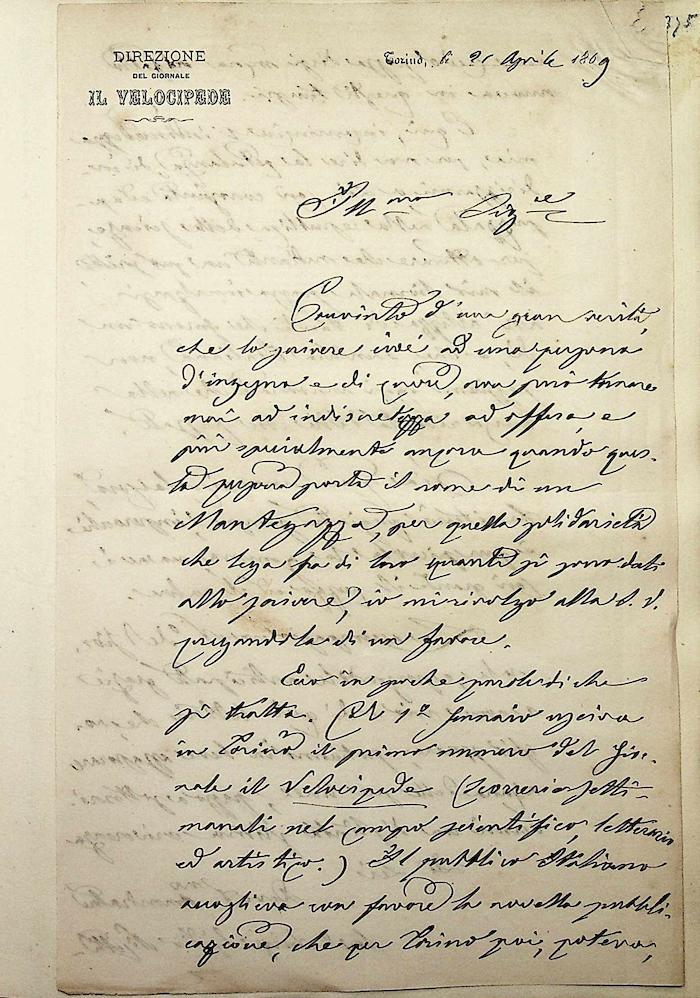 375
DIREZIONE
DEL GIORNALE
IL VELOCIPEDE
Torino, li 21 Aprile 1869
Ill.mo Sig.re
Convinto d'una gran verità,
che lo scrivere cioè ad una persona
d'ingegno e di cuore, non può tornare
mai ad indiscretezza ad offesa, e
più specialmente ancora quando ques-
ta persona porta il nome di un
Mantegazza, per quella solidarietà
che lega fra di loro quanti si sono dati
allo scrivere, io mi rivolgo alla S. V.
pregandola di un favore.
Ecco in poche parole di che
si tratta. Al 1º Gennaio usciva
in Torino il primo numero del Gior-
nale il Velocipede (scorrerie setti-
manali nel campo scientifico, letterario
ed artistico.) Il pubblico Italiano
accoglieva con favore la novella pubbli-
cazione, che per Torino poi, poteva,